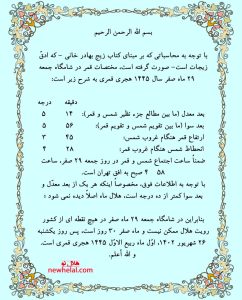 بسم الله الرحمن الرحیم
با توجه به محاسباتی که بر مبنای کتاب زیج بهادر خانی – که ادقّ
زیجات است– صورت گرفته است، مختصات قمر در شامگاه جمعه
۲۹ ماه صفر سال ۱۴۴۵ هجری قمری به شرح زیر است:
دقیقه درجه
بعد معدل (ما بین مطالع جزء نظیر شمس و قمر): ۱۴ ۵
بعد سوا (ما بین تقویم شمس و تقویم قمر): ۵۶ ۵
ارتفاع قمر هنگام غروب شمس: ۴۵ ۳
انحطاط شمس هنگام غروب قمر: ۲۸ ۴
ضمناً ساعت اجتماع شمس و قمر در روز جمعه ۲۹ صفر، ساعت
۵۸ ۴ صبح به افق تهران است.
با توجه به اطلاعات فوق، مخصوصاً اینکه هر یک از بعد معدّل و
بعد سوا کمتر از ده درجه است، هلال ماه اصلاً دیده نمی شود :
بنابراین در شامگاه جمعه ۲۹ ماه صفر در هیچ نقطه ای از کشور
رویت هلال ممکن نیست و ماه صفر ۳۰ روز است، پس روز یکشنبه
۲۶ شهریور ۱۴۰۲، اوّل ماه ربیع الاوّل ۱۴۴۵ هجری قمری است.
و الله أعلم.
هلال نو
newhelal.com